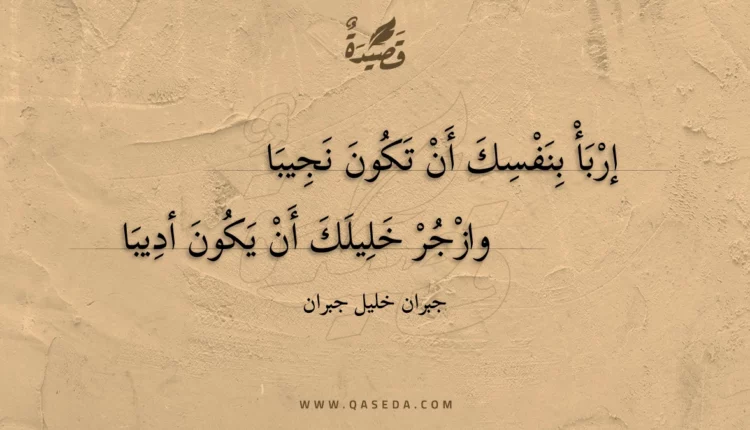 قَصِيْدَةٌ
إرْبَأْ بِنَفْسِكَ أَنْ تَكُونَ نَجِيبَا
وازْجُرْ خَلِيلَكَ أَنْ يَكُونَ أدِيبَا
جبران خليل جبران
WWW.QASEDA.COM